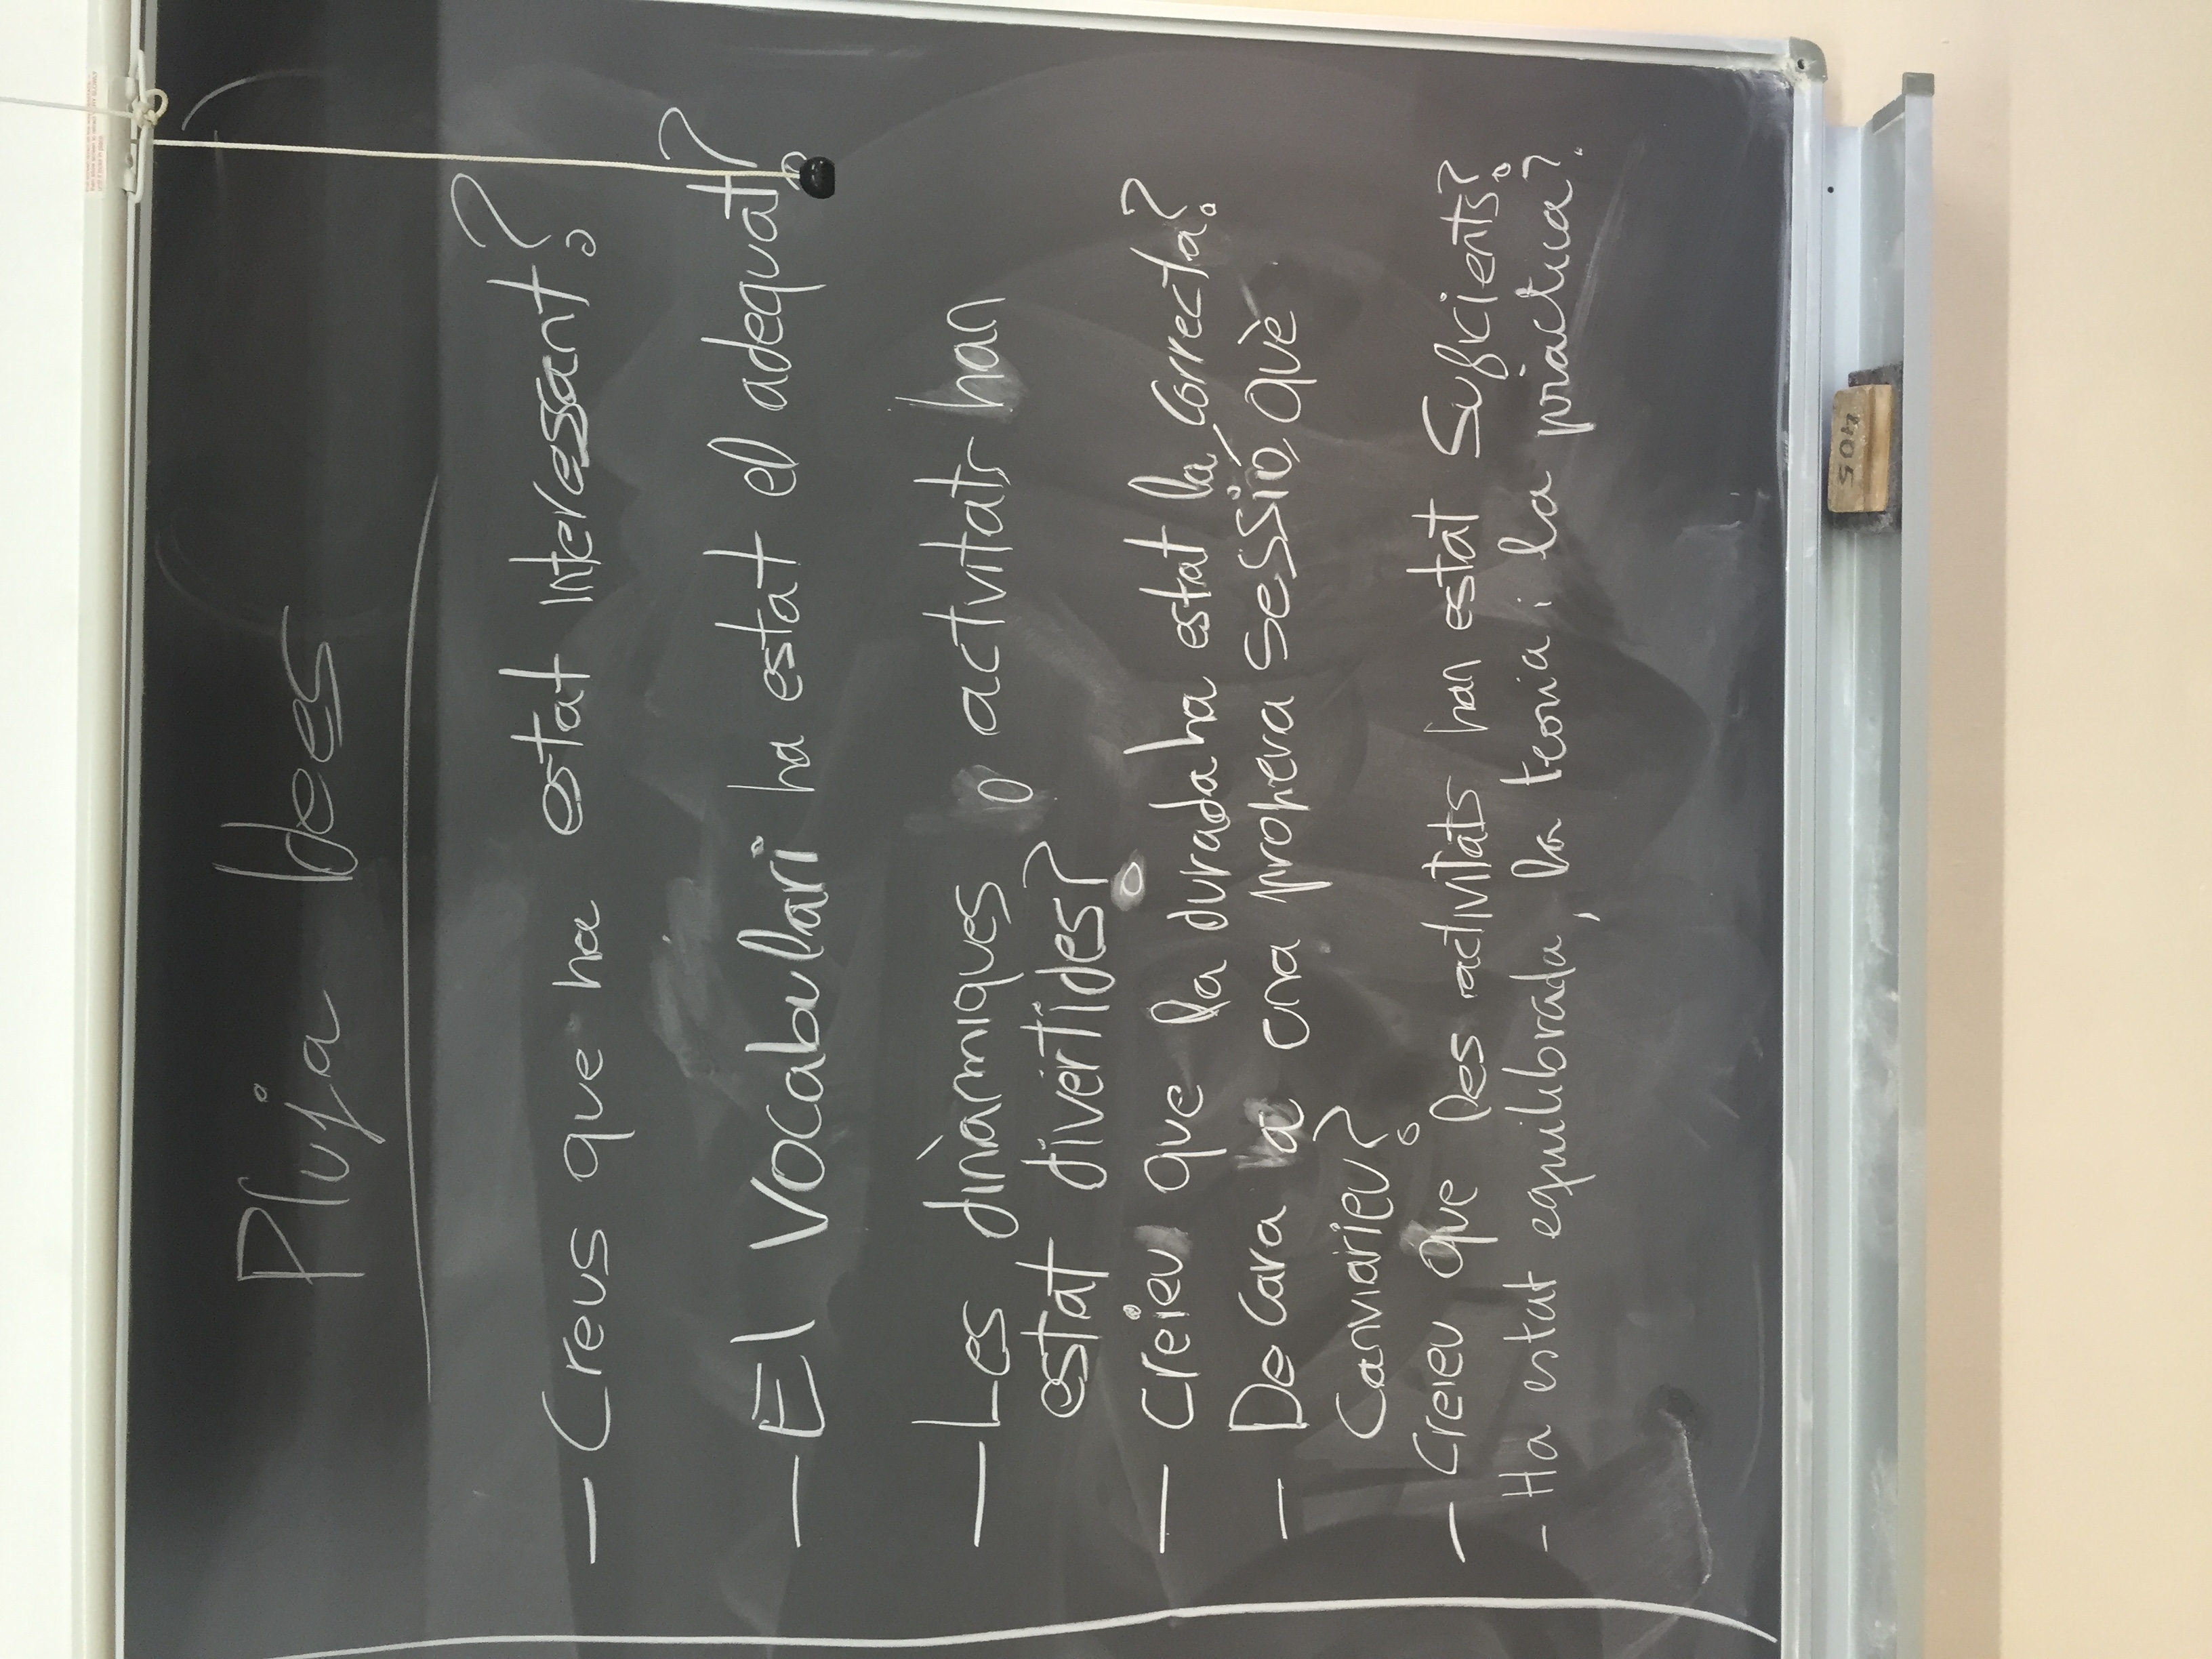 Pluja Idees
- Creus que ha estat interessant?
- El vocabulari ha estat el adequat?
- Les dinàmiques o activitats han
estat divertides?
- Creieu que la durada ha estat la correcta?
- De cara a una propera sessió, què
canviarieu?
- Creieu que les activitats han estat suficients?
- Ha estat equilibrada, la teoria i la pràctica?
405